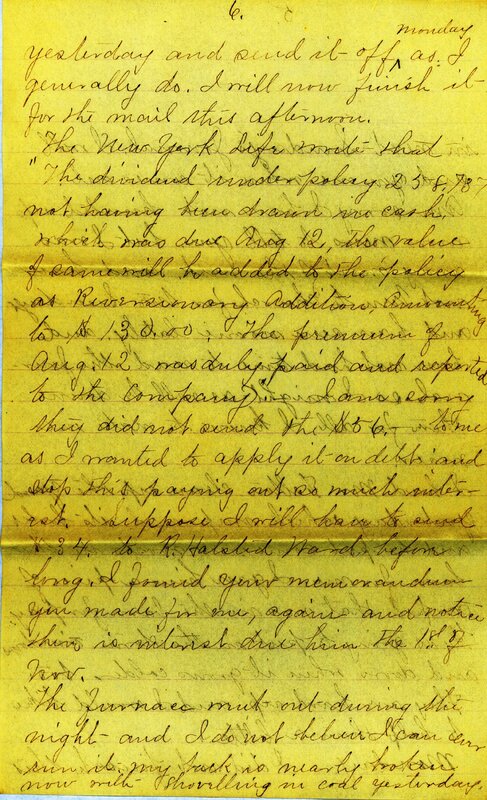 6.
monday
yesterday and send it off ^ as I
generally do. I will now finish it
for the mail this afternoon.
The New York Life write that
"The dividend under policy 258,787
not having been drawn in cash,
which was due Aug 12, the value
of same will be added to the policy
as Riversionary Addition, amounting
to $130.00. The premium of
Aug. 12 was duly paid and reported
to the Company". I am sorry
they did not send the $56.- to me
as I wanted to apply it on debt and
stop this paying out so much inter-
est. I suppose I will have to send
$34. to R. Halsted Ward before
long. I found your memorandum
you made for me, again and notice
there is interest due him the 1st of
Nov.
The furnace went out during the
night and I do not believe I can ever
run it. my back is nearly broken
now with shovelling in coal yesterday.